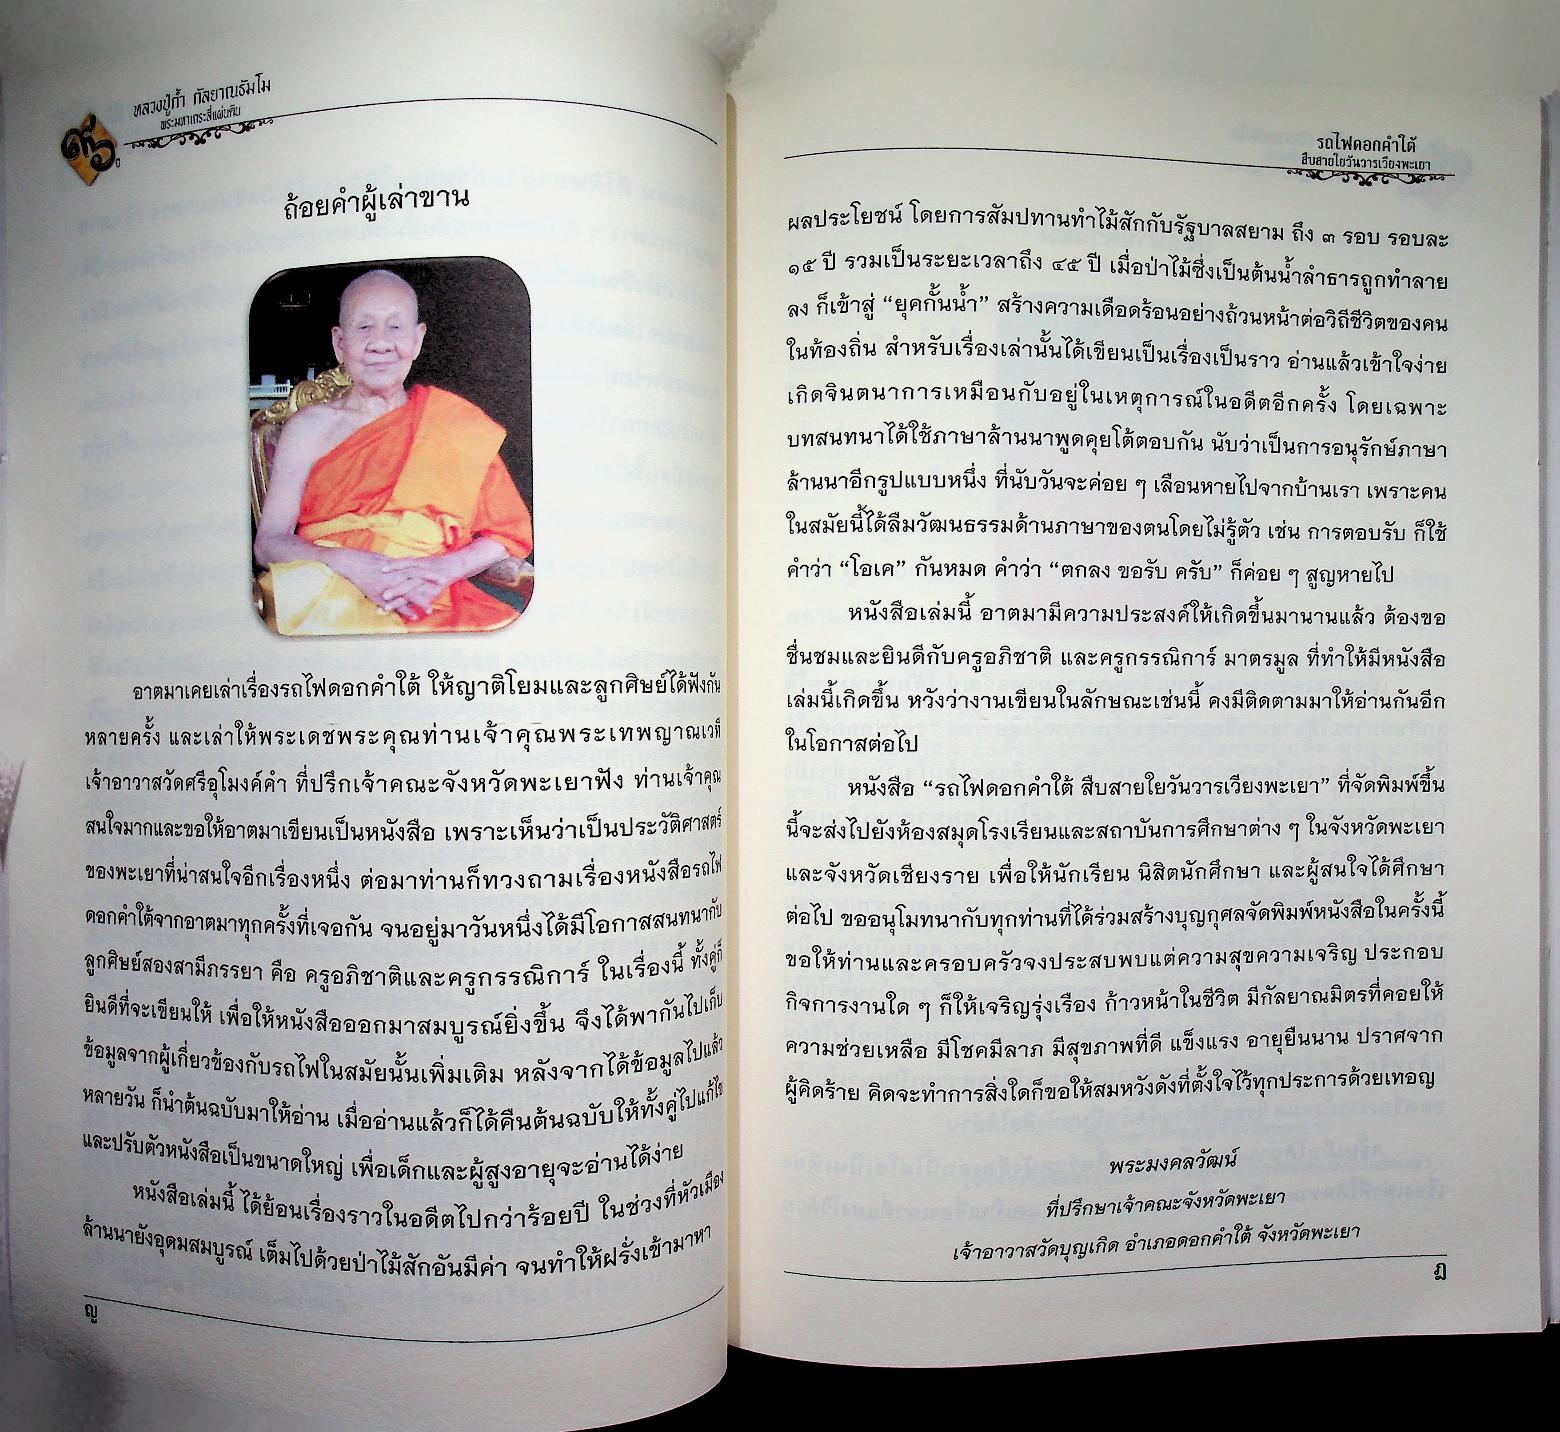 หลวงปู่ก้ำ กัลยาณธัมโม
พระมหาเถระสี่แผ่นดิน
ปี
ถ้อยคำผู้เล่าขาน
อาตมาเคยเล่าเรื่องรถไฟดอกคำใต้ ให้ญาติโยมและลูกศิษย์ได้ฟังกัน
หลายครั้ง และเล่าให้พระเดชพระคุณท่านเจ้าคุณพระเทพญาณเวที
เจ้าอาวาสวัดศรีอุโมงค์คำ ที่ปรึกเจ้าคณะจังหวัดพะเยาฟัง ท่านเจ้าคุณ
สนใจมากและขอให้อาตมาเขียนเป็นหนังสือ เพราะเห็นว่าเป็นประวัติศาสตร์
ของพะเยาที่น่าสนใจอีกเรื่องหนึ่ง ต่อมาท่านก็ทวงถามเรื่องหนังสือรถไฟ
ดอกคำใต้จากอาตมาทุกครั้งที่เจอกัน จนอยู่มาวันหนึ่งได้มีโอกาสสนทนากับ
ลูกศิษย์สองสามีภรรยา คือ ครูอภิชาติและครูกรรณิการ์ ในเรื่องนี้ ทั้งคู่ก็
ยินดีที่จะเขียนให้ เพื่อให้หนังสือออกมาสมบูรณ์ยิ่งขึ้น จึงได้พากันไปเก็บ
ข้อมูลจากผู้เกี่ยวข้องกับรถไฟในสมัยนั้นเพิ่มเติม หลังจากได้ข้อมูลไปแล้ว
หลายวัน ก็นำต้นฉบับมาให้อ่าน เมื่ออ่านแล้วก็ได้คืนต้นฉบับให้ทั้งคู่ไปแก้ไข
และปรับตัวหนังสือเป็นขนาดใหญ่ เพื่อเด็กและผู้สูงอายุจะอ่านได้ง่าย
หนังสือเล่มนี้ ได้ย้อนเรื่องราวในอดีตไปกว่าร้อยปี ในช่วงที่หัวเมือง
ล้านนายังอุดมสมบูรณ์ เต็มไปด้วยป่าไม้สักอันมีค่า จนทำให้ฝรั่งเข้ามาหา
ญ
รถไฟดอกคำใต้
สืบสายใยวันวารเวียงพะเยา
ผลประโยชน์ โดยการสัมปทานทำไม้สักกับรัฐบาลสยาม ถึง ๓ รอบ รอบละ
๑๕ ปี รวมเป็นระยะเวลาถึง ๔๕ ปี เมื่อป่าไม้ซึ่งเป็นต้นน้ำลำธารถูกทำลาย
ลง ก็เข้าสู่ “ยุคกั้นน้ำ” สร้างความเดือดร้อนอย่างถ้วนหน้าต่อวิถีชีวิตของคน
ในท้องถิ่น สำหรับเรื่องเล่านั้นได้เขียนเป็นเรื่องเป็นราว อ่านแล้วเข้าใจง่าย
เกิดจินตนาการเหมือนกับอยู่ในเหตุการณ์ในอดีตอีกครั้ง โดยเฉพาะ
บทสนทนาได้ใช้ภาษาล้านนาพูดคุยโต้ตอบกัน นับว่าเป็นการอนุรักษ์ภาษา
ล้านนาอีกรูปแบบหนึ่ง ที่นับวันจะค่อย ๆ เลือนหายไปจากบ้านเรา เพราะคน
ในสมัยนี้ได้ลืมวัฒนธรรมด้านภาษาของตนโดยไม่รู้ตัว เช่น การตอบรับ ก็ใช้
คำว่า “โอเค” กันหมด คำว่า “ตกลง ขอรับ ครับ” ก็ค่อย ๆ สูญหายไป
หนังสือเล่มนี้ อาตมามีความประสงค์ให้เกิดขึ้นมานานแล้ว ต้องขอ
ชื่นชมและยินดีกับครูอภิชาติ และครูกรรณิการ์ มาตรมูล ที่ทำให้มีหนังสือ
เล่มนี้เกิดขึ้น หวังว่างานเขียนในลักษณะเช่นนี้ คงมีติดตามมาให้อ่านกันอีก
ในโอกาสต่อไป
หนังสือ “รถไฟดอกคำใต้ สืบสายใยวันวารเวียงพะเยา” ที่จัดพิมพ์ขึ้น
นี้จะส่งไปยังห้องสมุดโรงเรียนและสถาบันการศึกษาต่าง ๆ ในจังหวัดพะเยา
และจังหวัดเชียงราย เพื่อให้นักเรียน นิสิตนักศึกษา และผู้สนใจได้ศึกษา
ต่อไป ขออนุโมทนากับทุกท่านที่ได้ร่วมสร้างบุญกุศลจัดพิมพ์หนังสือในครั้งนี้
ขอให้ท่านและครอบครัวจงประสบพบแต่ความสุขความเจริญ ประกอบ
กิจการงานใด ๆ ก็ให้เจริญรุ่งเรือง ก้าวหน้าในชีวิต มีกัลยาณมิตรที่คอยให้
ความช่วยเหลือ มีโชคมีลาภ มีสุขภาพที่ดี แข็งแรง อายุยืนนาน ปราศจาก
ผู้คิดร้าย คิดจะทำการสิ่งใดก็ขอให้สมหวังดังที่ตั้งใจไว้ทุกประการด้วยเทอญ
พระมงคลวัฒน์
ที่ปรึกษาเจ้าคณะจังหวัดพะเยา
เจ้าอาวาสวัดบุญเกิด อำเภอดอกคำใต้ จังหวัดพะเยา
ฎ